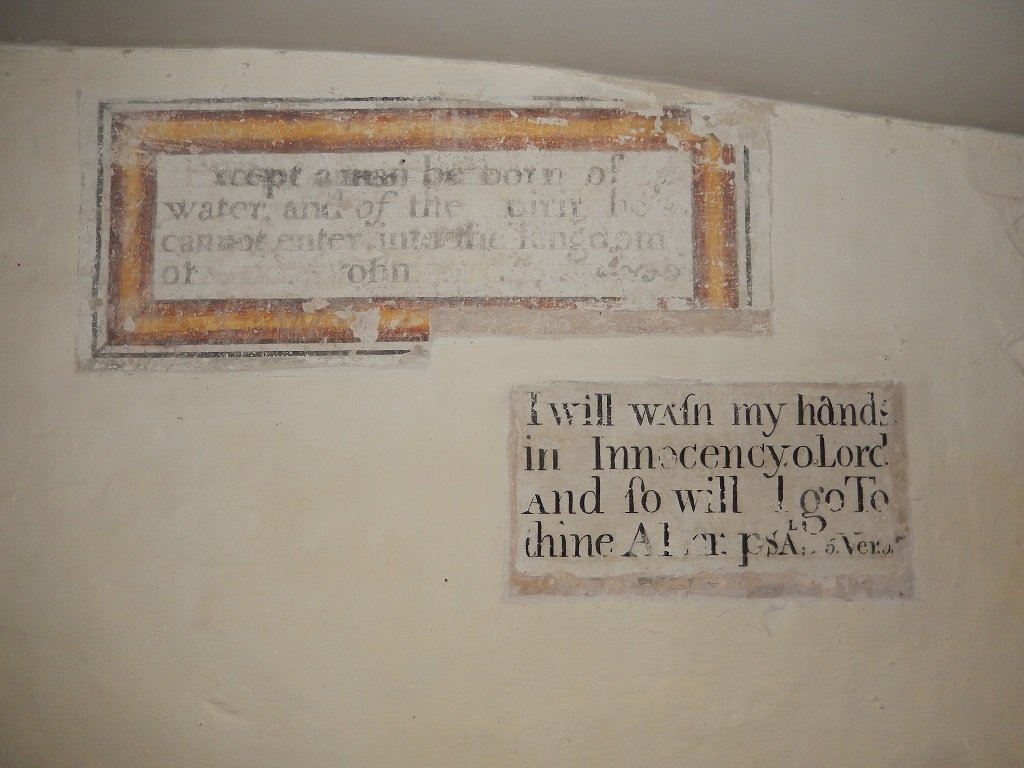 Except a man be born of
water, and of the pirit he
cannot enter into the kingdom
of ohn
I will waſh my hands
in Innocency o Lord
And ſo will I go To
thine Alter psAL Ver